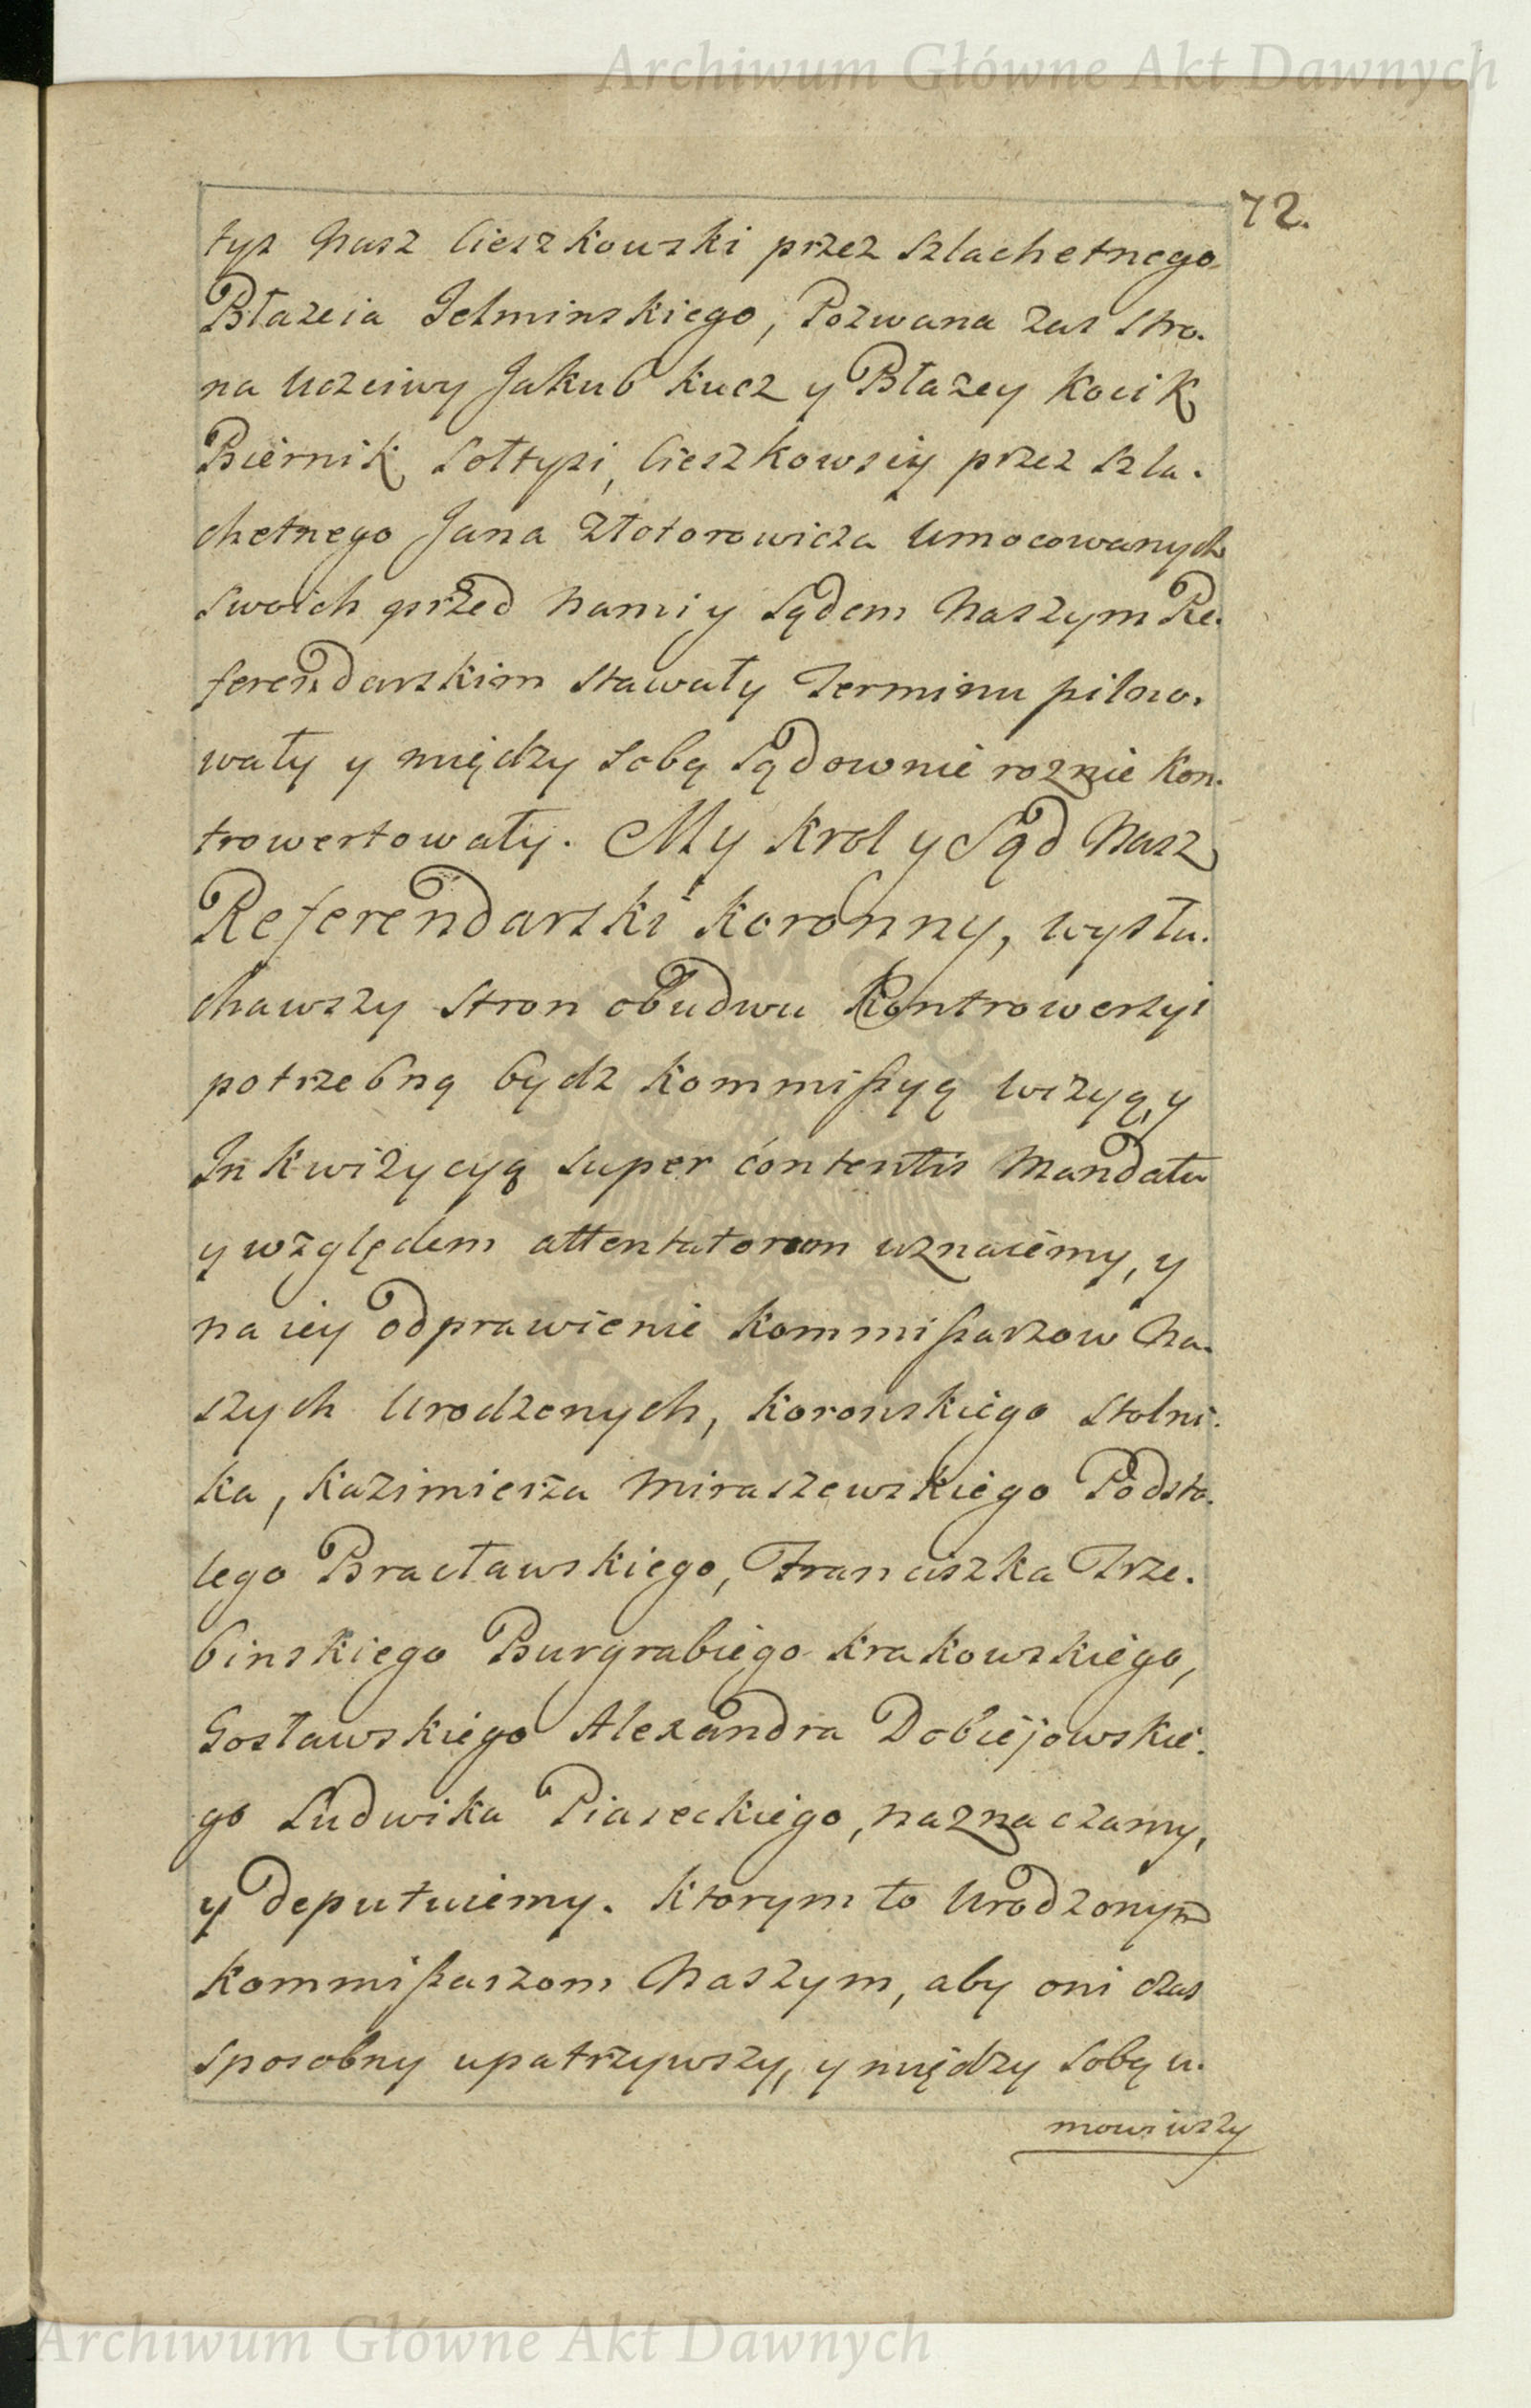 Archiwum Główne Akt Dawnych
72.
tys Nasz Cieszkowski przez Szlachetnego
Błazeia Jelminskiego, Pozwana zas Stro-
na Uczciwy Jakub Kucz y Błazey Kocik
Biernik Sołtysi, Cieszkowscy przez Szla-
chetnego Jana Złotorowicza Umocowanych
Swoich przed Nami y Sądem Naszym Re-
ferendarskim stawały Terminu pilno-
wały y między sobą Sądownie roznie kon-
trowertowały. My Krol y Sąd Nasz
Referendarski Koronny, wysłu-
chawszy Stron obudwu Kontrowersyi
potrzebną bydz Kommissyą Wizyą, y
Inkwizycyą super contentis Mandatu
y względem attentatorum uznaiemy, y
na iey odprawienie Kommissarzow Na-
szych Urodzonych, Koronskiego Stolni-
ka, Kazimierza Miraszewskiego Podsto-
lego Bracławskiego, Franciszka Trze-
binskiego Burgrabiego Krakowskiego,
Gosławskiego Alexandra Dobiejowskie-
go Ludwika Piaseckiego, naznaczamy,
y deputuiemy. Ktorym to Urodzonym
Kommissarzom Naszym, aby oni czas
sposobny upatrzywszy, y między sobą u-
mowiwszy
Archiwum Główne Akt Dawnych